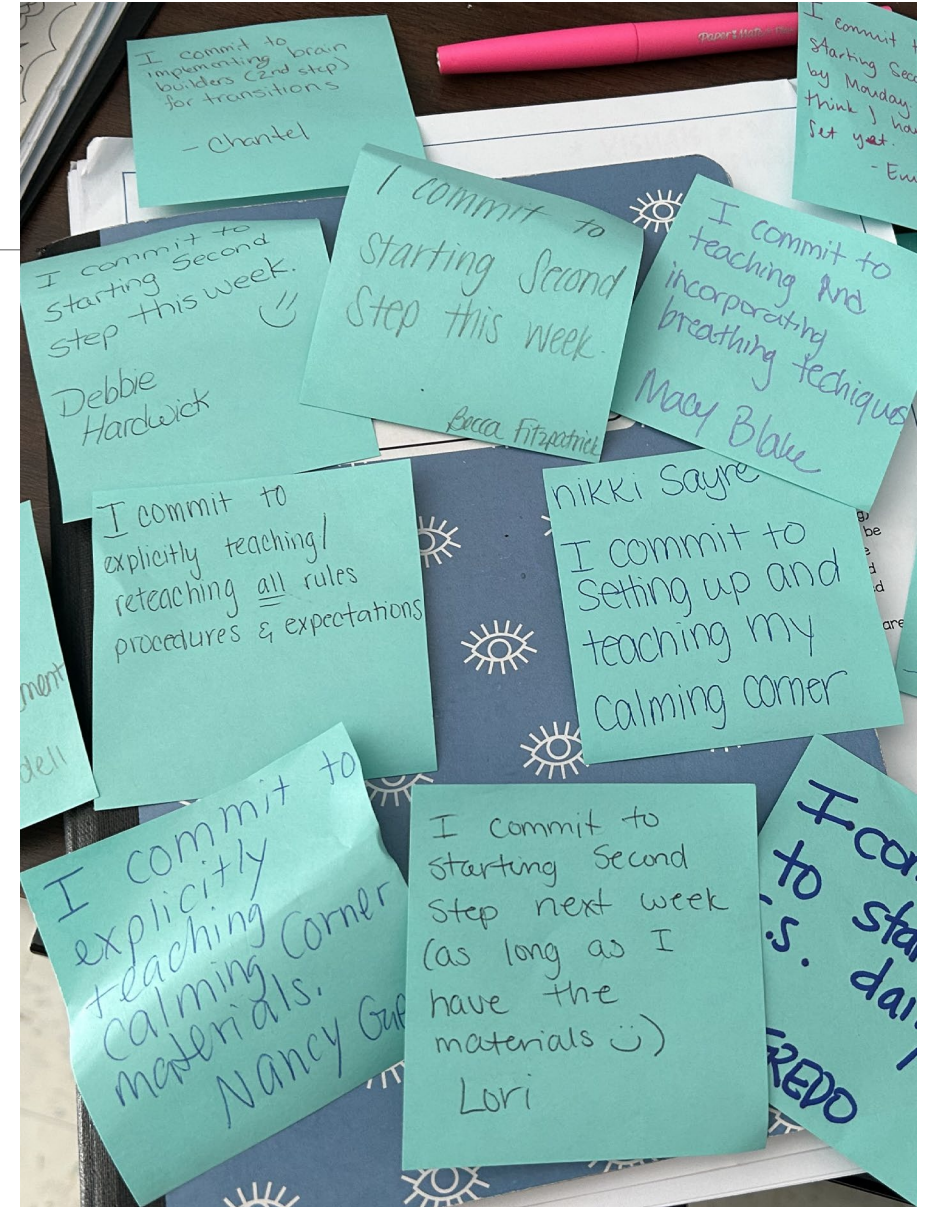 I commit to
implementing brain
builders (2nd step)
for transitions
- Chantel
Paper Mate
I commit
starting Sec
by Monday.
think I ha
set yet.
- Em
I commit to
starting Second
step this week.
Debbie
Hardwick
I commit to
starting Second
Step this week.
Becca Fitzpatrick
I commit to
teaching And
incorporating
breathing techiques
Macy Blake
I commit to
explicitly teaching/
reteaching all rules
procedures & expectations
nikki Sayre
I commit to
setting up and
teaching my
calming corner
be
d
are
ment
dell
I commit to
explicitly
teaching
calming Corner
materials.
Nancy Gue
I commit to
starting Second
Step next week
(as long as I
have the
materials ü)
Lori
I com
to sta
.s. dai
FREDO